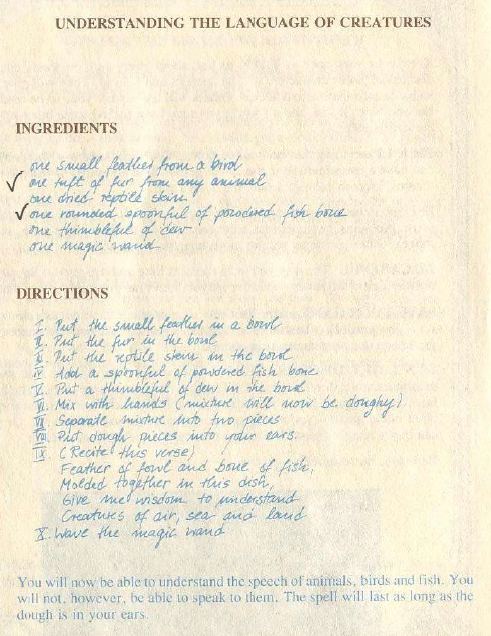 UNDERSTANDING THE LANGUAGE OF CREATURES
INGREDIENTS
one small feather from a bird
✓ one tuft of fur from any animal
one dried reptile skin
✓ one rounded spoonful of powdered fish bone
one thimbleful of dew
one magic wand
DIRECTIONS
I. Put the small feather in a bowl
II. Put the fur in the bowl
III. Put the reptile skin in the bowl
IV. Add a spoonful of powdered fish bone
V. Put a thimbleful of dew in the bowl
VI. Mix with hands (mixture will now be doughy)
VII. Separate mixture into two pieces
VIII. Put dough pieces into your ears.
IX. (Recite this verse)
Feather of fowl and bone of fish,
Molded together in this dish,
Give me wisdom to understand
Creatures of air, sea and land
X. Wave the magic wand
You will now be able to understand the speech of animals, birds and fish. You
will not, however, be able to speak to them. The spell will last as long as the
dough is in your ears.